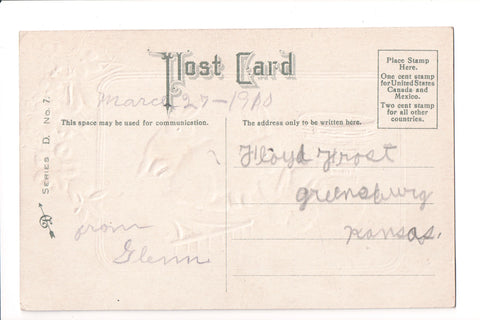 Post Card
March 27-1910
Place Stamp
Here.
One cent stamp
for United States
Canada and
Mexico.
Two cent stamp
for all other
countries.
This space may be used for communication.
The address only to be written here.
SERIES D. No. 7.
Floyd Frost
Greensburg
Kansas.
from
Glenn